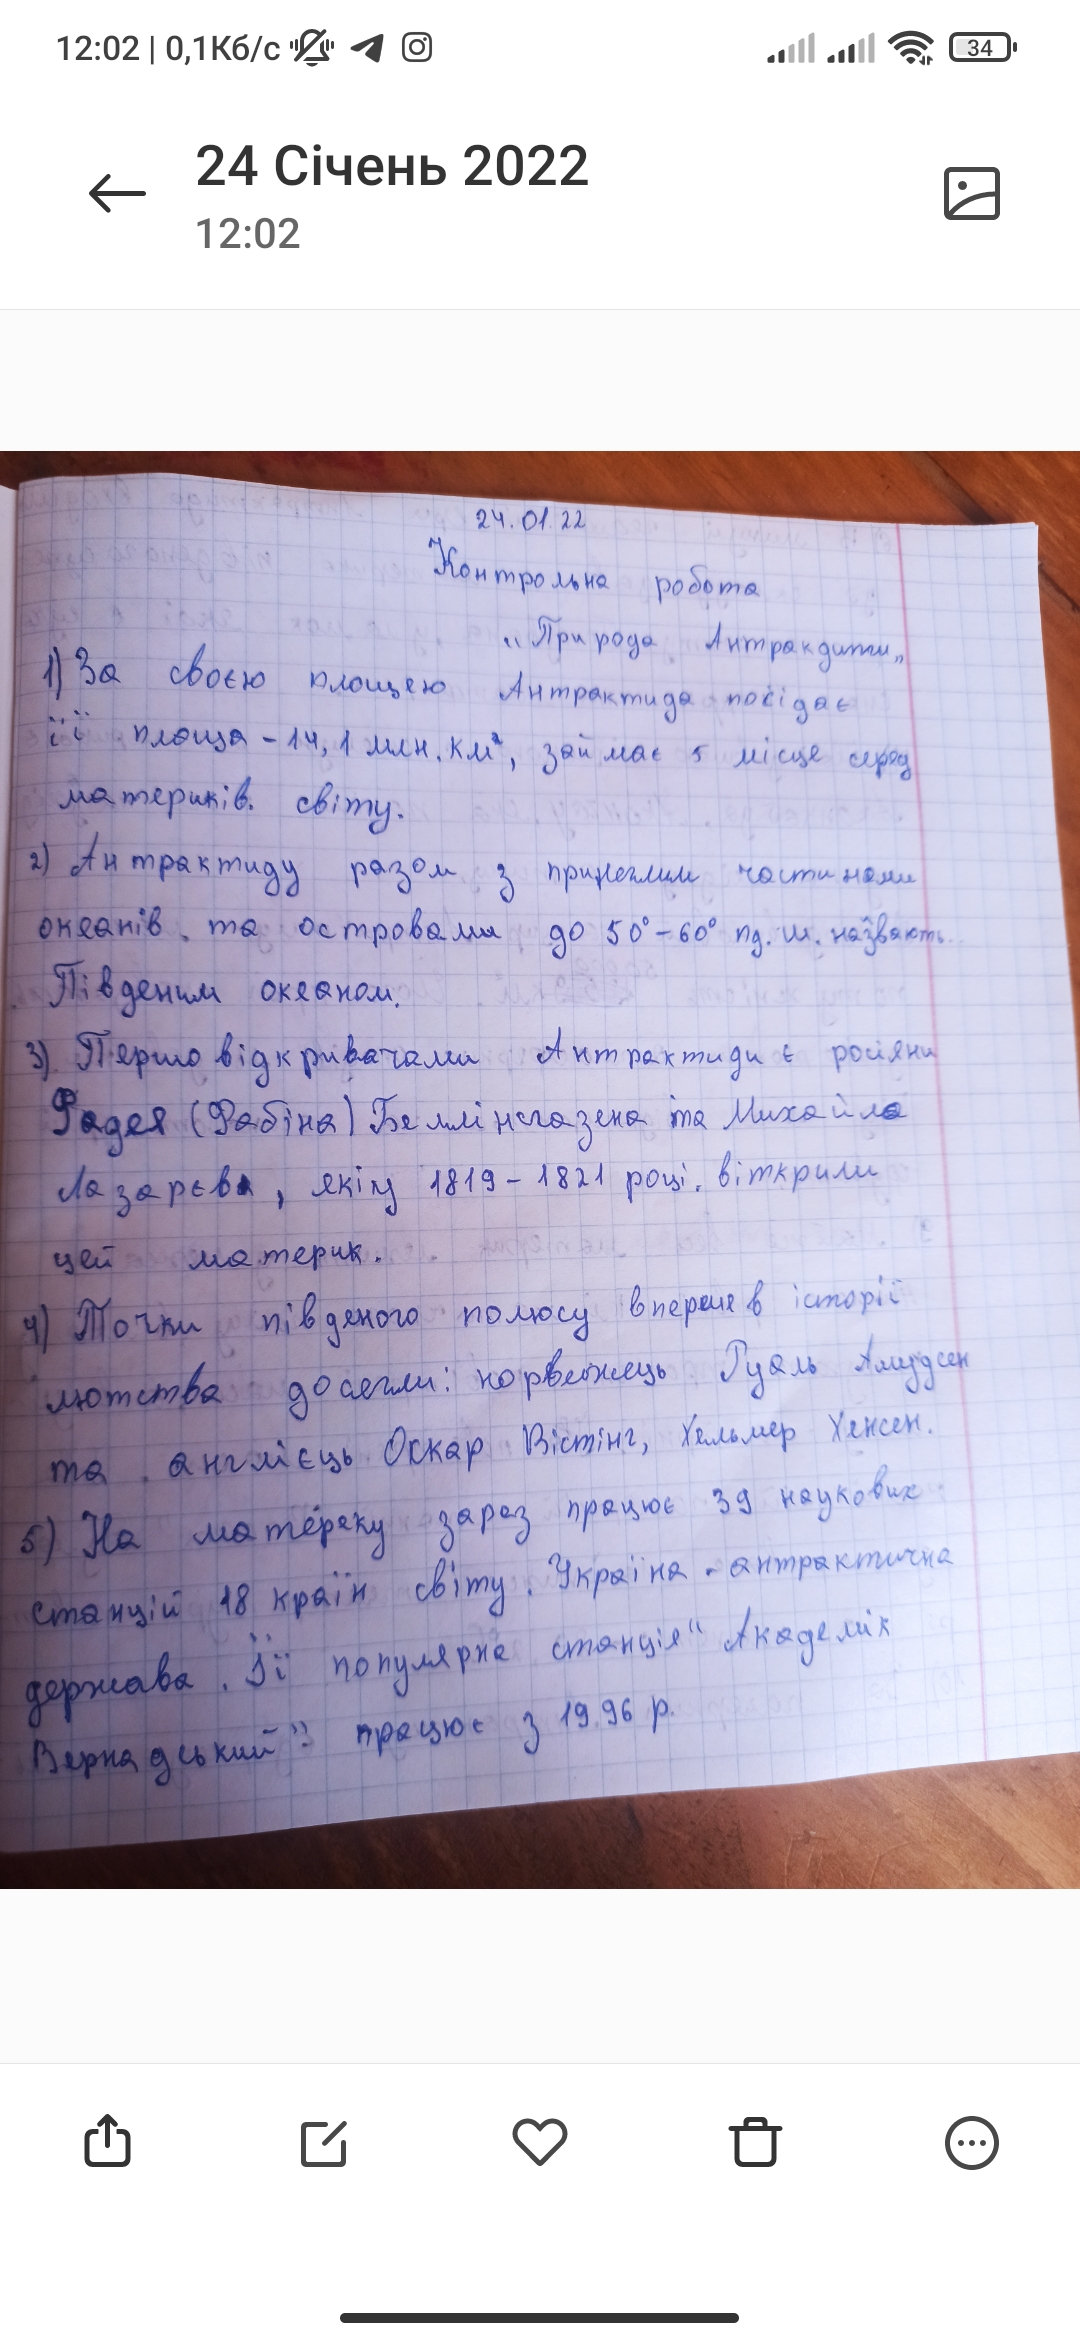 12:02 | 0,1Кб/с
34
24 Січень 2022
12:02
24.01.22
Контрольна робота
"Природа Антракдити"
1) За своєю площею Антрактида посідає
її площа - 14,1 млн. км², займає 5 місце серед
материків. світу.
2) Антрактиду разом з прилеглим частинами
океанів та островами до 50°-60° пд. ш. назвають
Південим океаном.
3) Першовідкривачами Антрактиди є росіяни
Фадея (Фабіна) Беллінсгазена та Михайла
Лазарєва, які у 1819-1821 році. віткрили
цей материк.
4) Точки південого полюсу вперше в історії
лютства досягли: норвежець Руаль Амудсен
та англієць Оскар Вістінг, Хельмер Хенсен.
5) На матереку зараз працює 39 наукових
станцій 18 країн світу. Україна - антрактична
держава. Її популярна станція "Академік
Вернадський" працює з 1996 р.